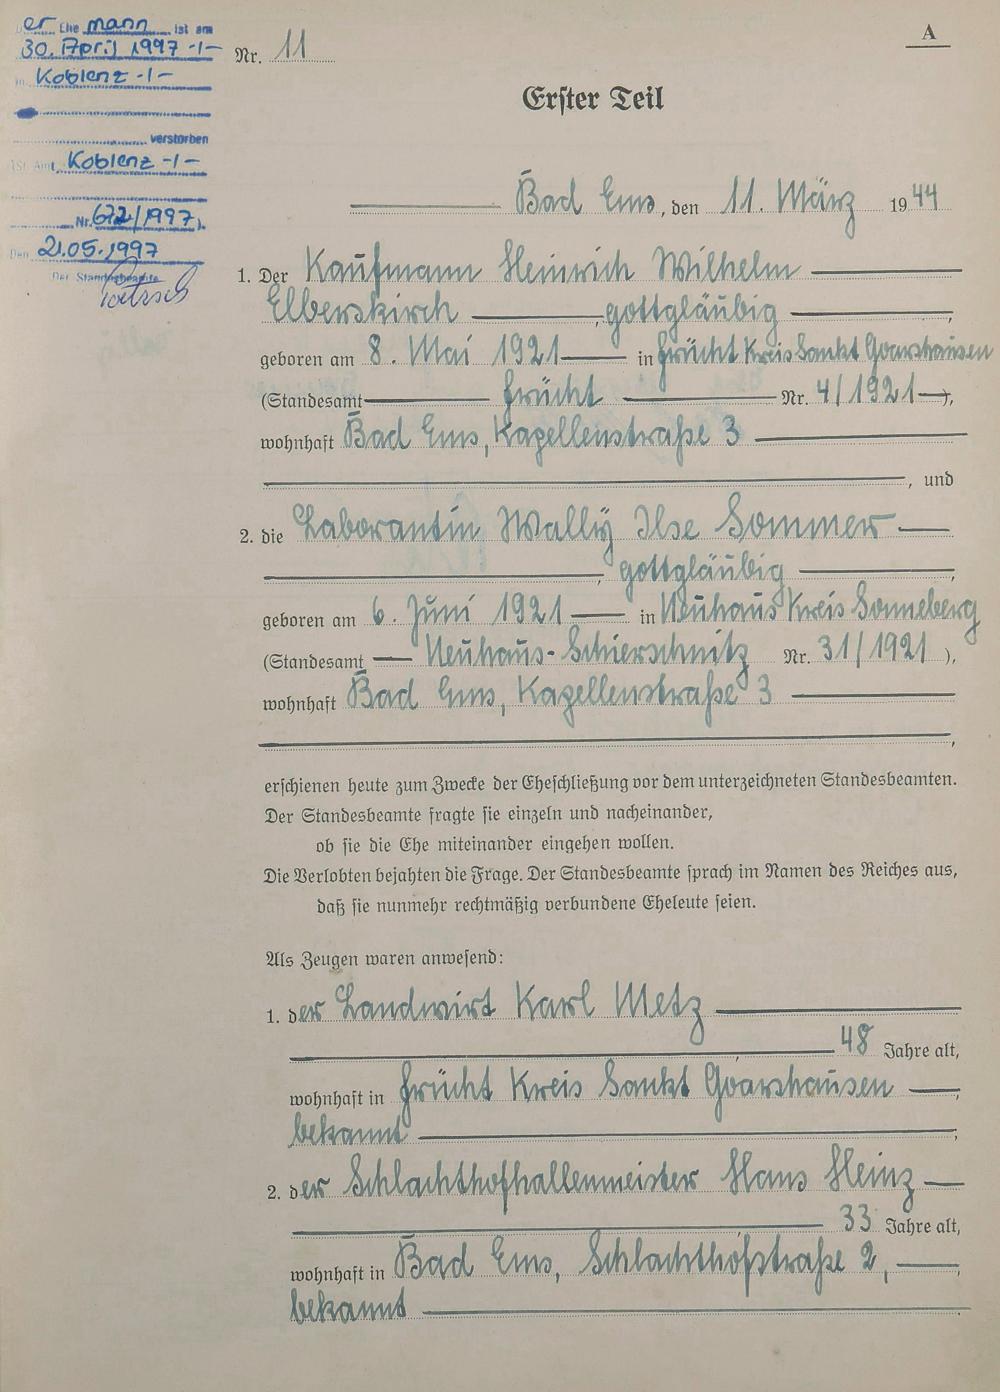 er Ehe mann ist am
30. April 1997 -/-
in Koblenz -/-
verstorben
(St. Amt Koblenz -/-
Nr. 672/1997).
Den 21.05.1997
Der Standesbeamte
A
Nr. 11
Erster Teil
Bad Ems, den 11. März 1944
1. Der Kaufmann Heinrich Wilhelm
Elberskirch, gottgläubig,
geboren am 8. Mai 1921 in Frücht Kreis Sankt Goarshausen
(Standesamt Frücht Nr. 4/1921),
wohnhaft Bad Ems, Kapellenstraße 3
, und
2. die Laborantin Wally Ilse Sommer
, gottgläubig,
geboren am 6. Juni 1921 in Neuhaus Kreis Sonneberg
(Standesamt Neuhaus-Schierschnitz Nr. 31/1921),
wohnhaft Bad Ems, Kapellenstraße 3
,
erschienen heute zum Zwecke der Eheschließung vor dem unterzeichneten Standesbeamten.
Der Standesbeamte fragte sie einzeln und nacheinander,
ob sie die Ehe miteinander eingehen wollen.
Die Verlobten bejahten die Frage. Der Standesbeamte sprach im Namen des Reiches aus,
daß sie nunmehr rechtmäßig verbundene Eheleute seien.
Als Zeugen waren anwesend:
1. der Landwirt Karl Metz
, 48 Jahre alt,
wohnhaft in Frücht Kreis Sankt Goarshausen,
bekannt,
2. der Schlachthofhallenmeister Hans Heinz
33 Jahre alt,
wohnhaft in Bad Ems, Schlachthofstraße 2,
bekannt